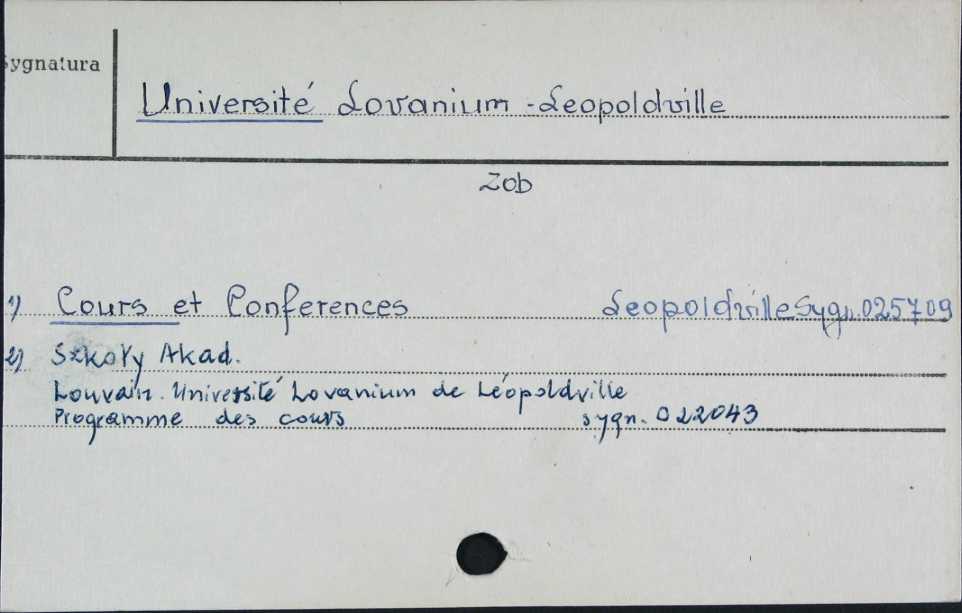 Sygnatura
Université Lovanium - Leopoldville
Zob
1) Cours et Conferences Leopoldville Sygn. 025709
2) Szkoły Akad.
Louvain. Université Lovanium de Léopoldville
Programme des cours sygn. 022043